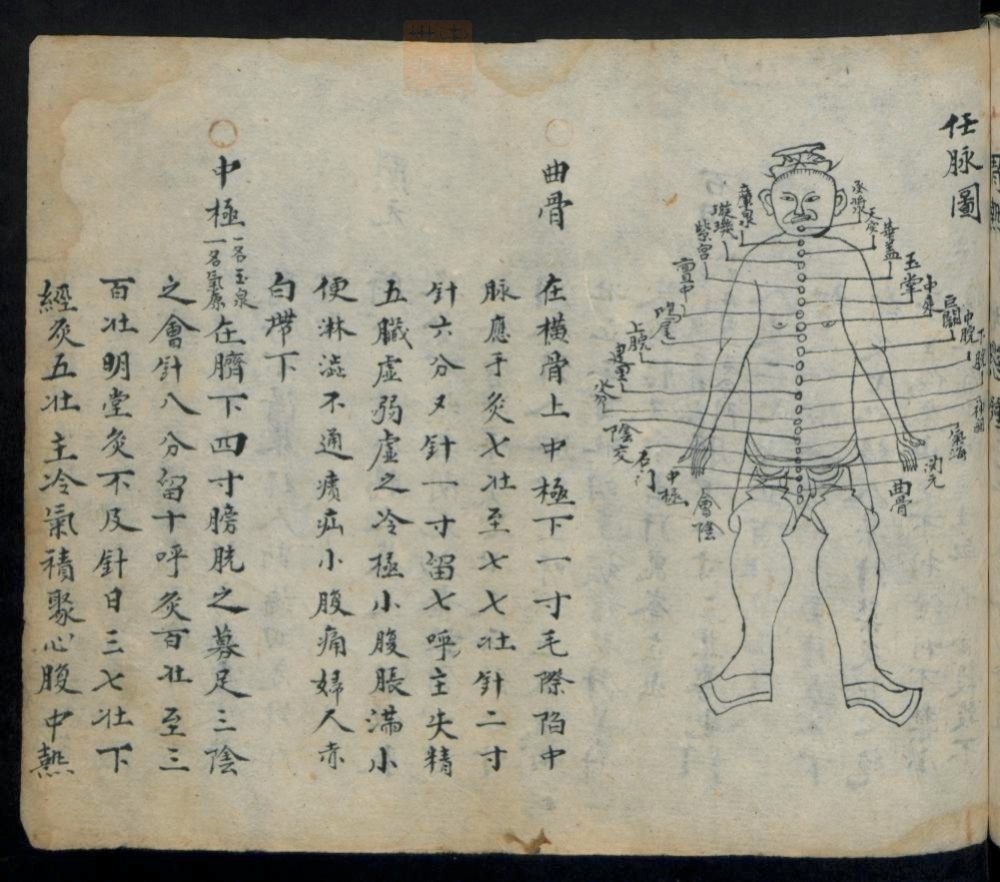 任脉圖
承漿
天突
華蓋
玉堂
中庭
巨闕
中脘
下脘
神闕
氣海
関元
曲骨
廉泉
璇璣
紫宮
亶中
鳩尾
上脘
建里
水分
陰交
石门
中極
會陰
曲骨
在橫骨上中極下一寸毛際陷中
脉應手灸七壯至七七壯針二寸
針六分又針一寸留七呼主失精
五臟虛弱虛之冷極小腹脹滿小
便淋澁不通㿉疝小腹痛婦人赤
白滯下
中極 一名玉泉 一名氣原 在臍下四寸膀胱之募足三陰
之會針八分留十呼灸百壯至三
百壯明堂灸不及針日三七壯下
經灸五壯主冷氣積聚心腹中熱